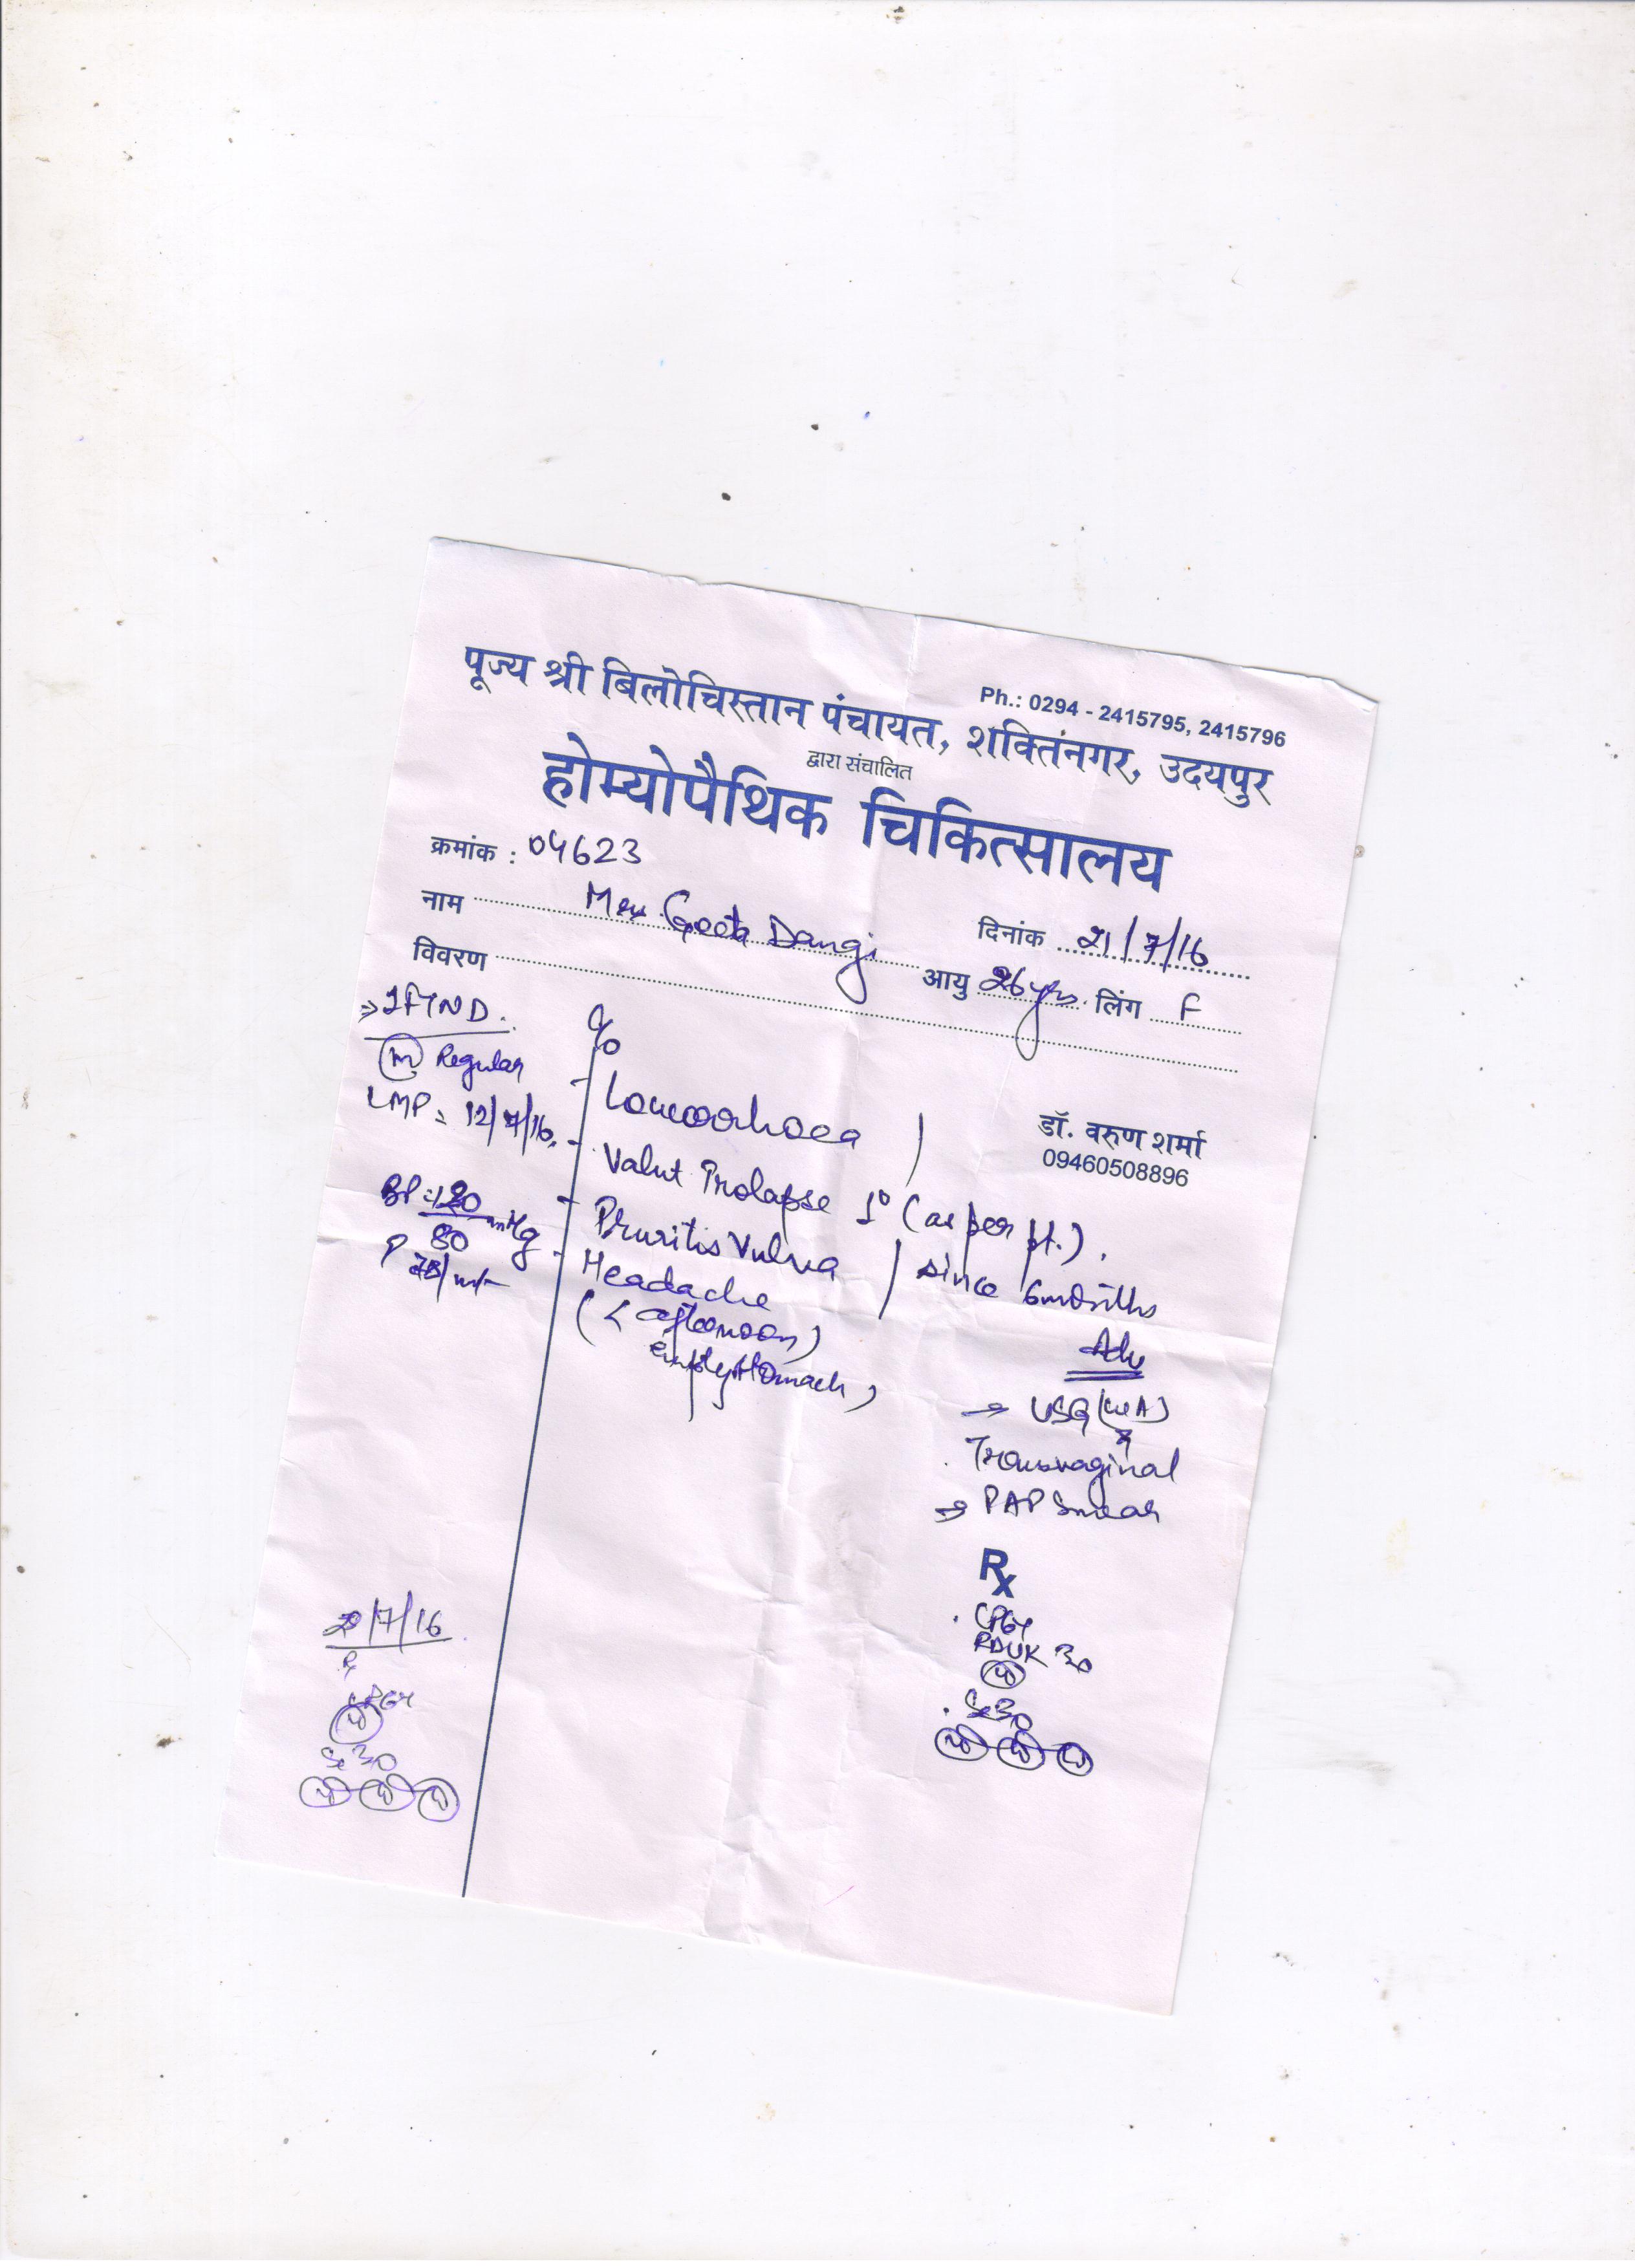 Ph.: 0294 - 2415795, 2415796
पूज्य श्री बिलोचिस्तान पंचायत, शक्तिनगर, उदयपुर
द्वारा संचालित
होम्योपैथिक चिकित्सालय
क्रमांक : 04623
दिनांक 21/7/16
नाम Mrs. Geeta Dangi
आयु 26 yrs. लिंग F
विवरण
→ 2FTND.
(M) Regular
LMP = 12/7/16.
BP = 120/80 mmHg
P 78/mt
c/o
- Leucorrhoea
- Valut Prolapse 1° (as per pt.).
- Pruritis Vulva / since 6 months
- Headache
(< afternoon)
empty stomach)
डॉ. वरुण शर्मा
09460508896
Adv
→ USG (WA)
Transvaginal
→ PAP Smear
Rx
30
Se 30
/7/16
Se 30